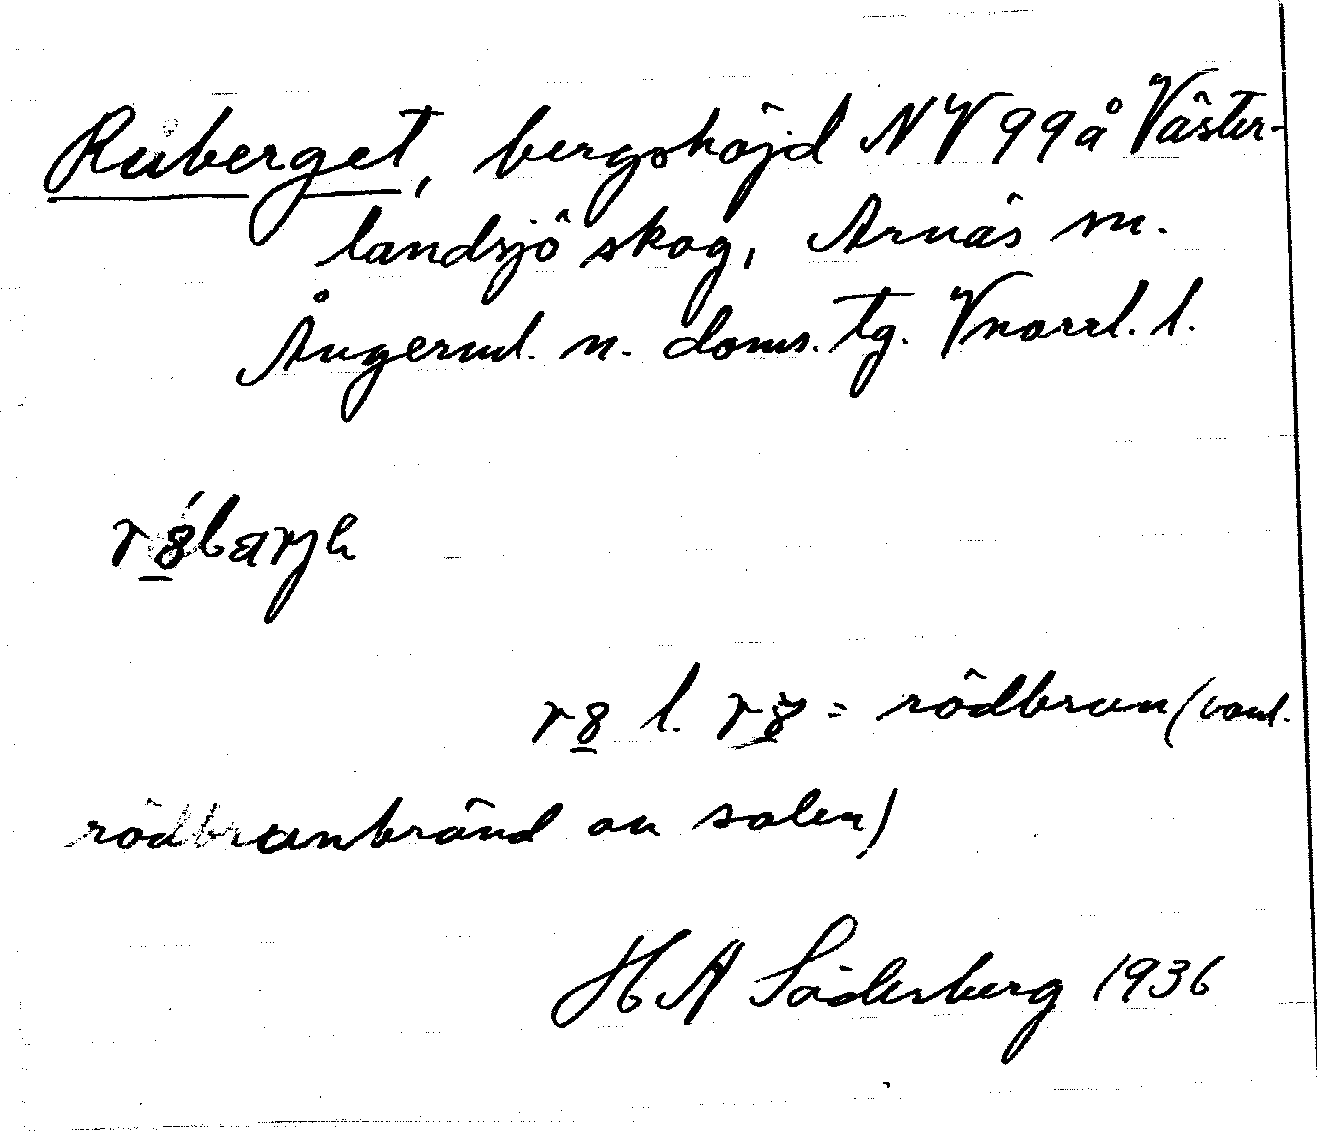 Ruberget, bergshöjd NV 99 å Väster-
landsjö skog, Arnäs sn.
Ångerml. n. doms. tg. Vnorrl. l.
rȣ́barjh
rȣ l. rȣ = rödbrun (vanl.
rödbrunbränd av solen)
H A Söderberg 1936